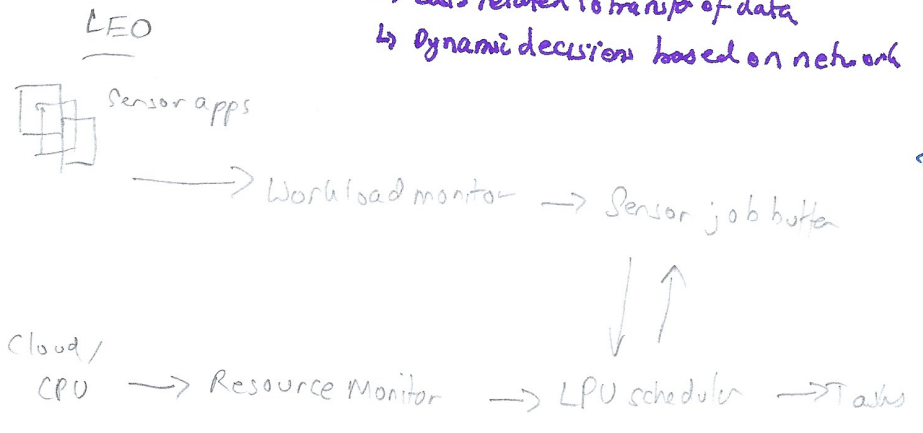 LEO
related to transfr of data
↳ Dynamic decisions based on network
Sensor apps
→ Workload monitor → Sensor job buffer
Cloud/
CPU → Resource Monitor → LPU scheduler → Tasks